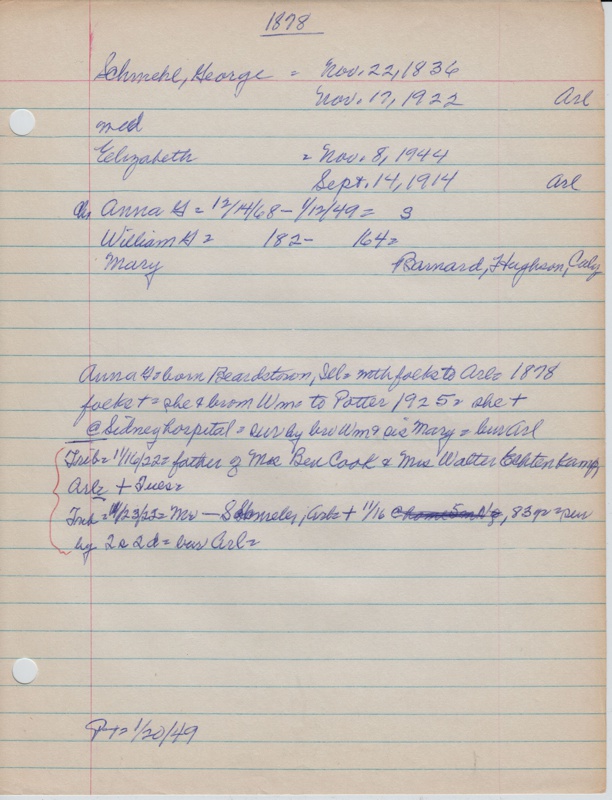 1878
Schmehl, George = Nov. 22, 1836
Nov. 17, 1922 Arl
md
Elizabeth = Nov. 8, 1944
Sept. 14, 1914 Arl
Ch Anna G = 12/14/68 - 1/12/49 = S
William G = 182- 164=
Mary Barnard, Hughson, Caly
Anna G = born Beardstown, Ill = mth folks to Arl = 1878
folks + = she & bro Wm = to Potter 1925 = she +
@ Sidney hospital = sur by bro Wm & sis Mary = bur Arl
Trib = 11/16/22 = father of Mrs Ben Cook & Mrs Walter Echtenkamp,
Arl = + Tues =
Trib = 11/23/22 = Mr - , Arl = + 11/16 , 83 y = sur
by 2 s 2 d = bur Arl =
P-T = 1/20/49